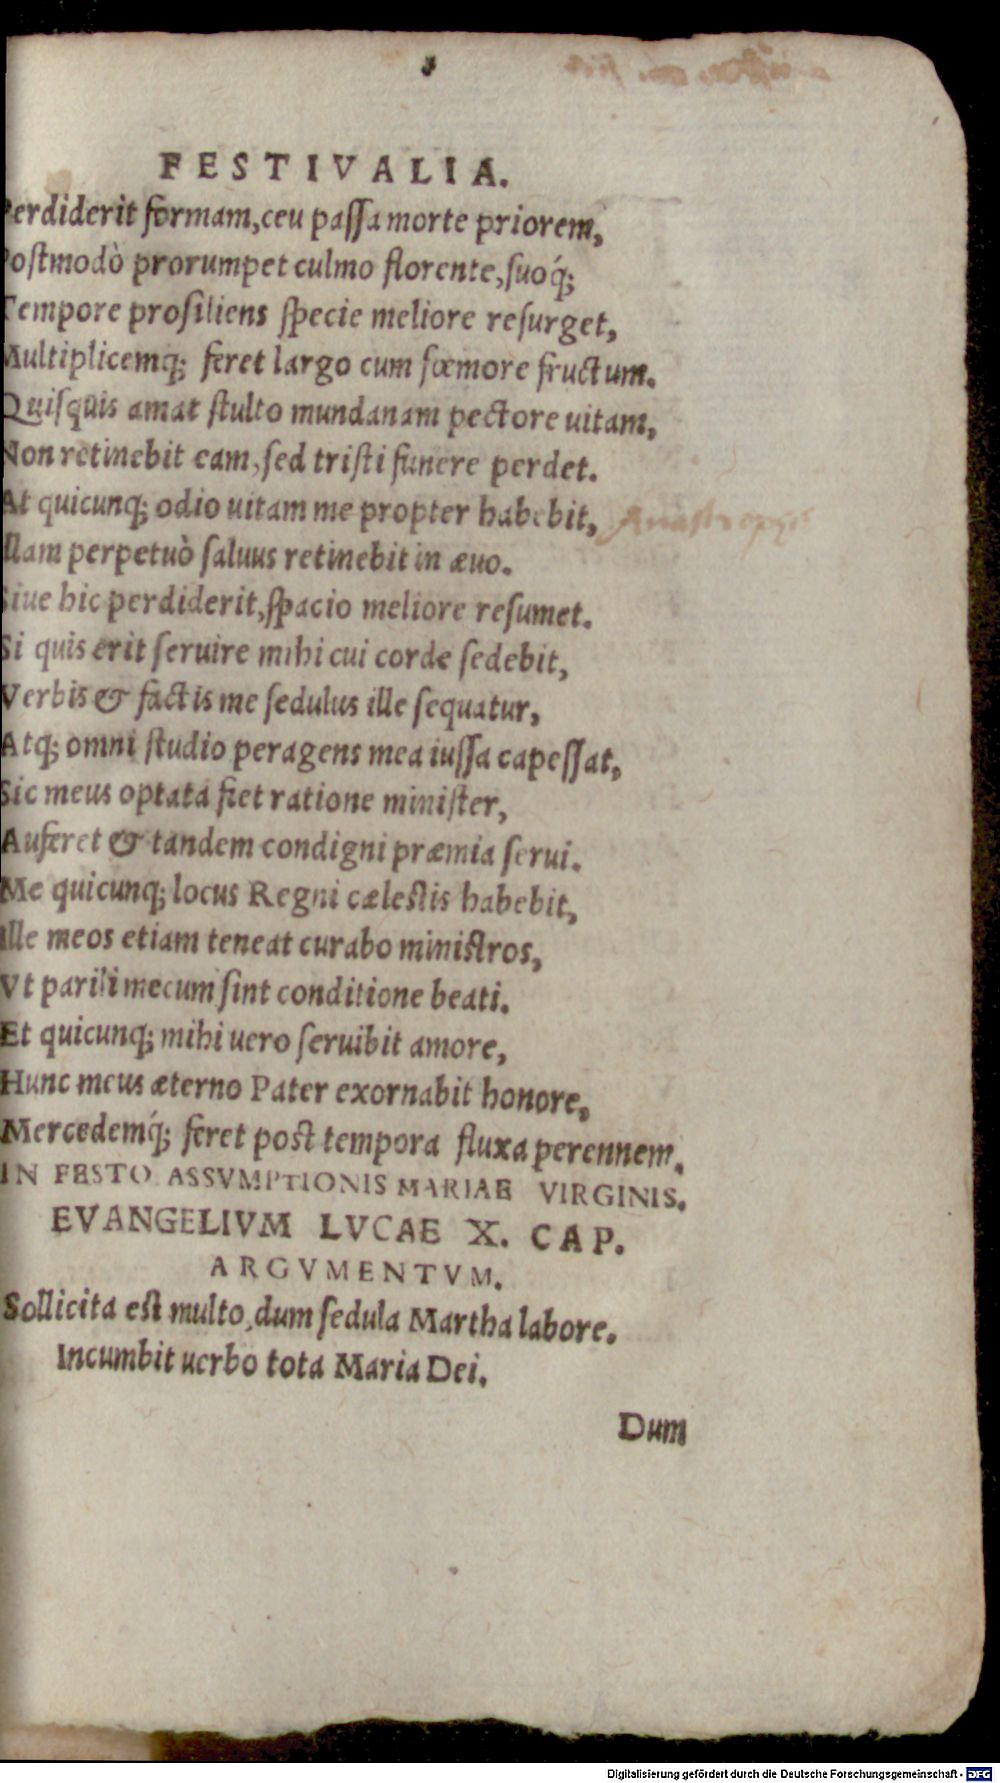 FESTIVALIA.
Perdiderit formam, ceu passa morte priorem,
Postmodò prorumpet culmo florente, suoq́;
Tempore prosiliens specie meliore resurget,
Multiplicemq; feret largo cum fœmore fructum.
Quisquis amat stulto mundanam pectore uitam,
Non retinebit eam, sed tristi funere perdet.
At quicunq; odio uitam me propter habebit,
Illam perpetuò saluus retinebit in æuo.
Siue hic perdiderit, spacio meliore resumet.
Si quis erit seruire mihi cui corde sedebit,
Verbis & factis me sedulus ille sequatur,
Atq; omni studio peragens mea iussa capessat,
Sic meus optata fiet ratione minister,
Auferet & tandem condigni præmia serui.
Me quicunq; locus Regni cælestis habebit,
Ille meos etiam teneat curabo ministros,
Vt parili mecum sint conditione beati.
Et quicunq; mihi uero seruibit amore,
Hunc meus æterno Pater exornabit honore,
Mercedemq́; feret post tempora fluxa perennem.
IN FESTO ASSVMPTIONIS MARIAE VIRGINIS.
EVANGELIVM LVCAE X. CAP.
ARGVMENTVM.
Sollicita est multo, dum sedula Martha labore.
Incumbit uerbo tota Maria Dei.
Dum
Digitalisierung gefördert durch die Deutsche Forschungsgemeinschaft - DFG